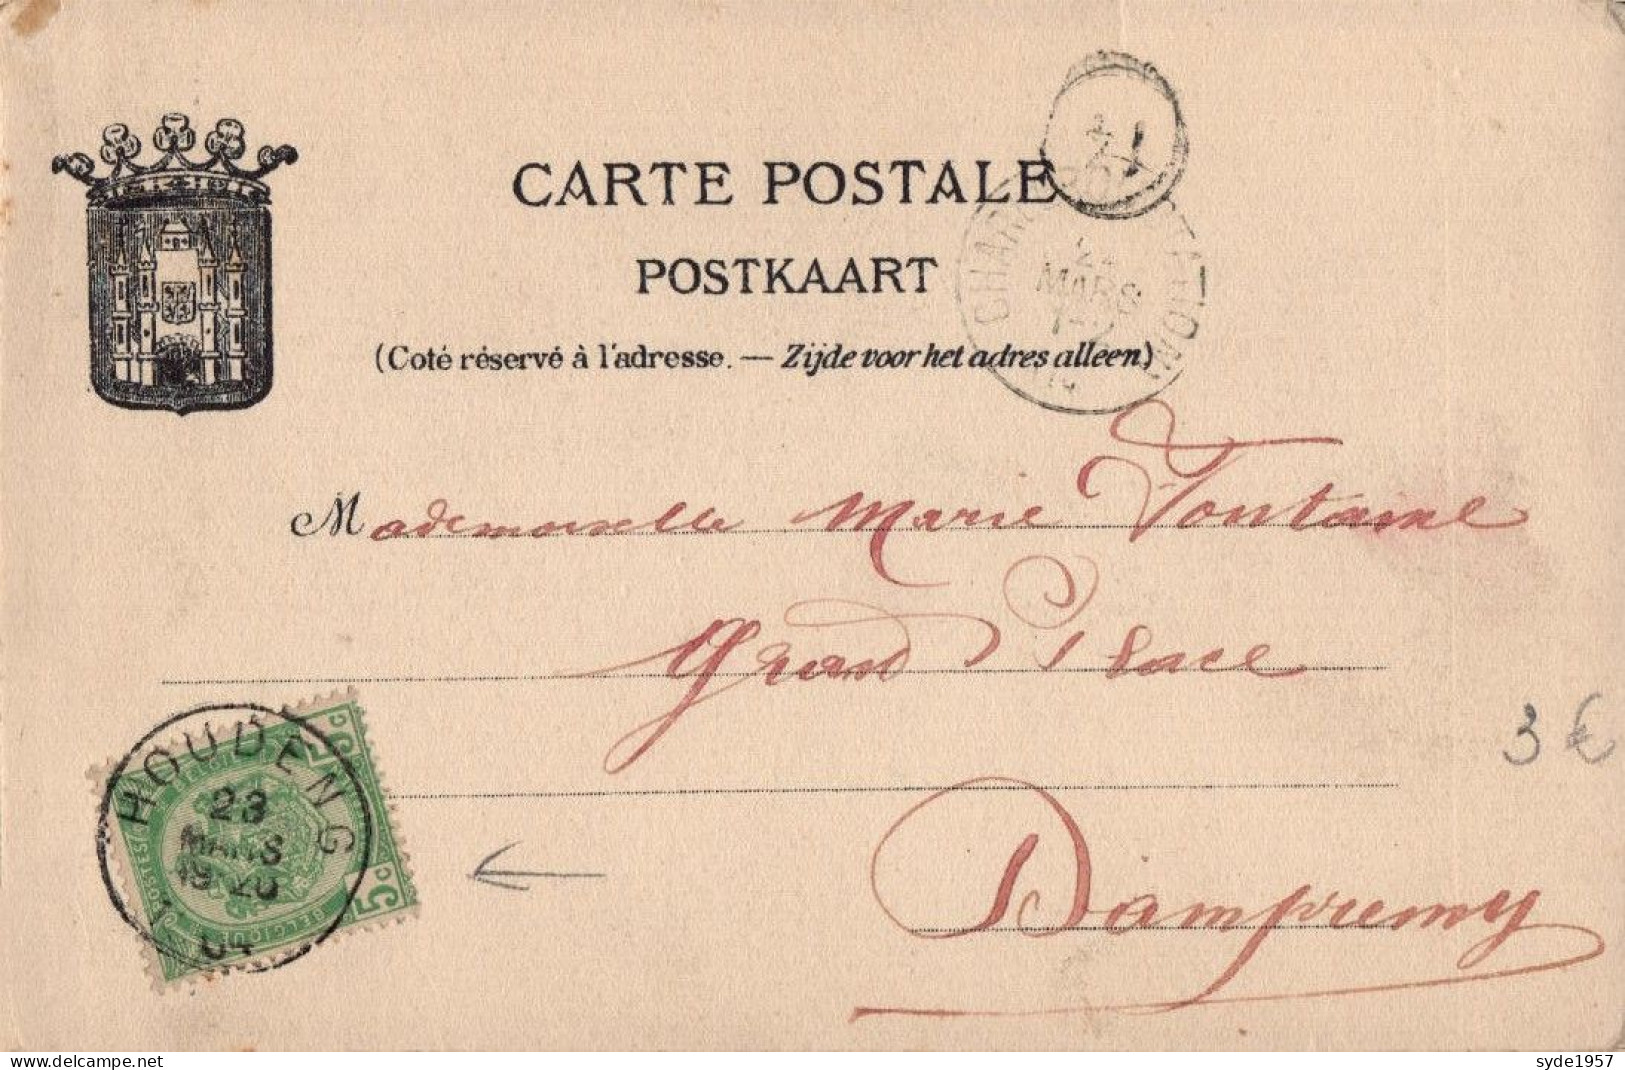 CARTE POSTALE
POSTKAART
(Coté réservé à l'adresse. — Zijde voor het adres alleen)
MARS
Mademoiselle Marie Fontaine
Grand Place
Dampremy
3 €
HOUDENG
23
MARS
19-20
04
5c
5c
BELGIQUE
syde1957